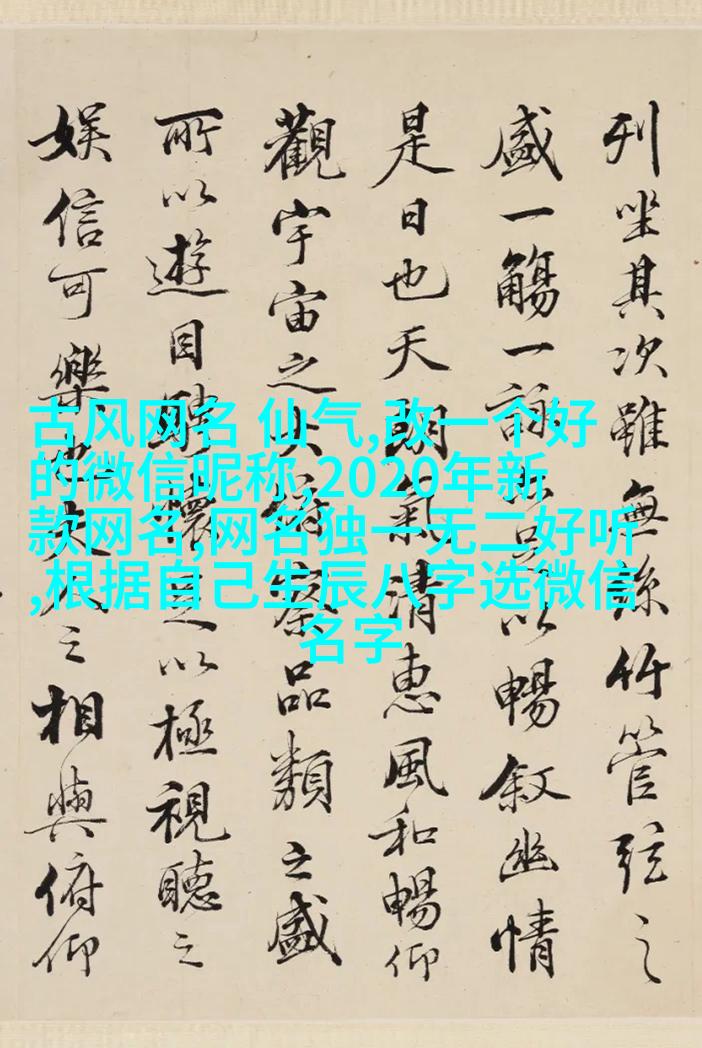 列坐其次雖無絲竹管弦之
盛一觴一詠亦足以暢敘幽情
是日也天朗氣清惠風和暢仰
觀宇宙之大俯察品類之盛
所以遊目騁懷足以極視聽之
娛信可樂也夫人之相與俯仰
古风网名 仙气,改一个好
的微信昵称,2020年新
款网名,网名独一无二好听
,根据自己生辰八字选微信
名字